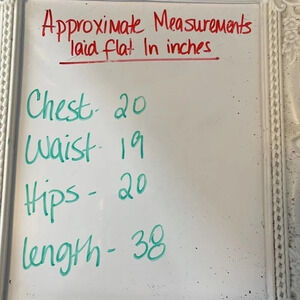 Approximate Measurements
laid flat In inches
Chest- 20
Waist- 19
Hips - 20
length - 38